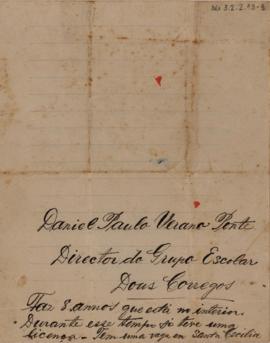 3.2.2.13-8
Daniel Paulo Verano Ponte
Director do Grupo Escolar
Dous Corregos
Faz 8 annos que está no interior.
Durante esse tempo só teve uma
licença. Tem uma vaga em Santa Cecilia